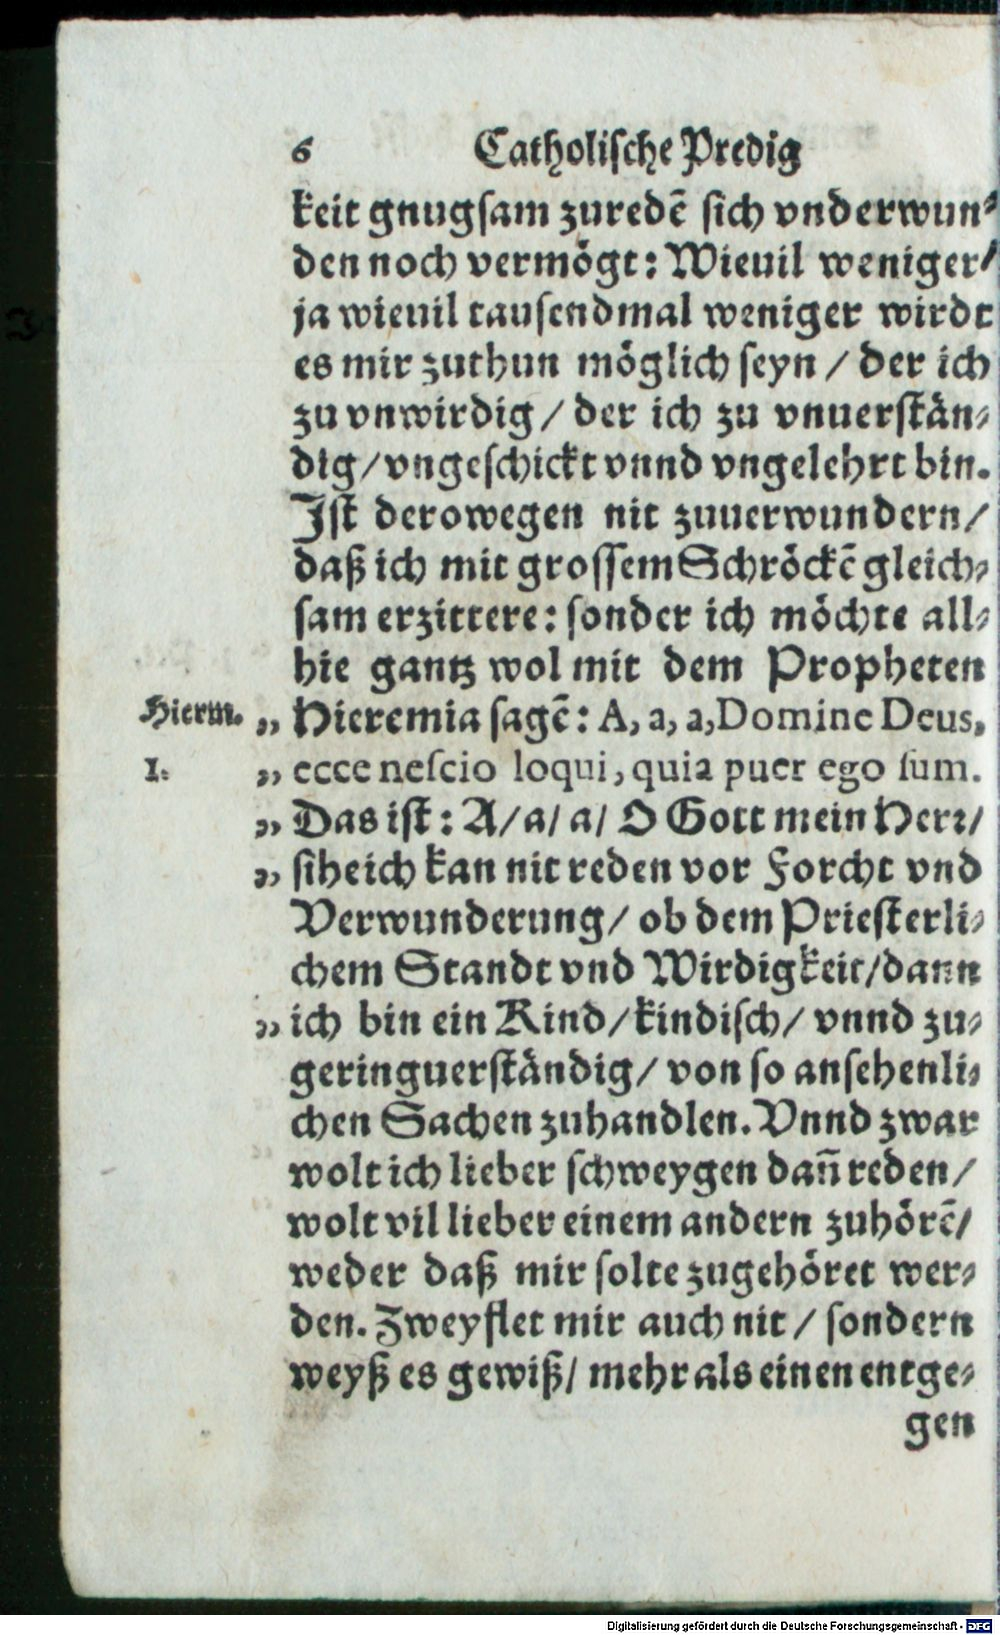 6 Catholische Predig
keit gnugsam zuredē sich vnderwun⸗
den noch vermögt: Wieuil weniger/
ja wieuil tausendmal weniger wirdt
es mir zuthun möglich seyn / der ich
zu vnwirdig / der ich zu vnuerstän⸗
dig / vngeschickt vnnd vngelehrt bin.
Ist derowegen nit zuuerwundern /
daß ich mit grossem Schröckē gleich⸗
sam erzittere: sonder ich möchte all⸗
hie gantz wol mit dem Propheten
Hierm. „ Hieremia sagē: A, a, a, Domine Deus,
1. „ ecce nescio loqui, quia puer ego sum.
„ Das ist: A / a / a / O Gott mein Herꝛ /
„ sihe ich kan nit reden vor Forcht vnd
Verwunderung / ob dem Priesterli⸗
chem Standt vnd Wirdigkeit / dann
„ ich bin ein Kind / kindisch / vnnd zu⸗
geringuerständig / von so ansehenli⸗
chen Sachen zuhandlen. Vnnd zwar
wolt ich lieber schweygen dañ reden /
wolt vil lieber einem andern zuhörē /
weder daß mir solte zugehöret wer⸗
den. Zweyflet mir auch nit / sondern
weyß es gewiß / mehr als einen entge⸗
gen
Digitalisierung gefördert durch die Deutsche Forschungsgemeinschaft - DFG